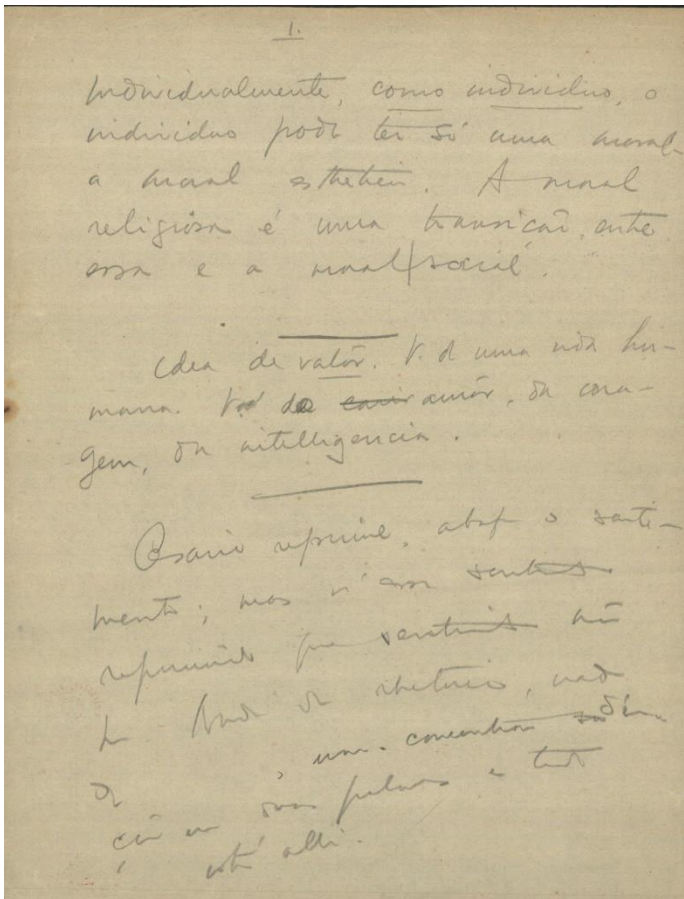 1.
Individualmente, como individuo, o
individuo pode ter só uma moral -
a moral esthetica. A moral
religiosa é uma transição entre
essa e a moral social.
Idea de valôr. V. de uma vida hu-
mana. V. do amôr, da cora-
gem, da intelligencia.
Cesario reprime, abafa o senti-
mento; mas n'esse
reprimido que não
ha nada de rhetorico, nada
de
uma concentra
ção em duas palavras e tudo
está alli.